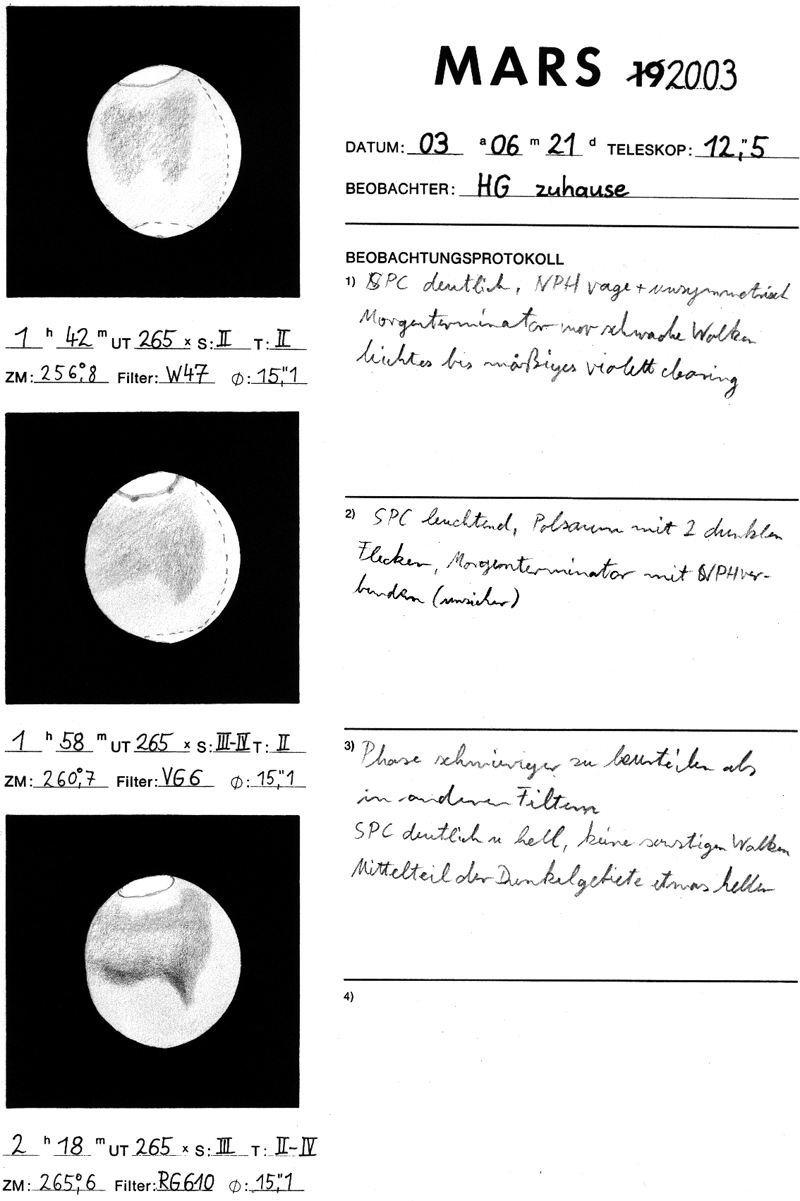 MARS 19 2003
DATUM: 03 a 06 m 21 d TELESKOP: 12,"5
BEOBACHTER: HG zuhause
BEOBACHTUNGSPROTOKOLL
1) SPC deutlich, NPH vage + unsymmetrisch
Morgenterminator nur schwache Wolken
leichtes bis mäßiges violett clearing
1 h 42 m UT 265 x S: II T: II
ZM: 256,°8 Filter: W47 Ø: 15,"1
2) SPC leuchtend, Polsaum mit 2 dunklen
Flecken, Morgenterminator mit NPH ver-
bunden (unsicher)
1 h 58 m UT 265 x S: III-IV T: II
ZM: 260,°7 Filter: VG6 Ø: 15,"1
3) Phase schwieriger zu beurteilen als
in anderen Filtern
SPC deutlich u hell, keine sonstigen Wolken
Mittelteil der Dunkelgebiete etwas heller
4)
2 h 18 m UT 265 x S: III T: II-IV
ZM: 265,°6 Filter: RG610 Ø: 15,"1